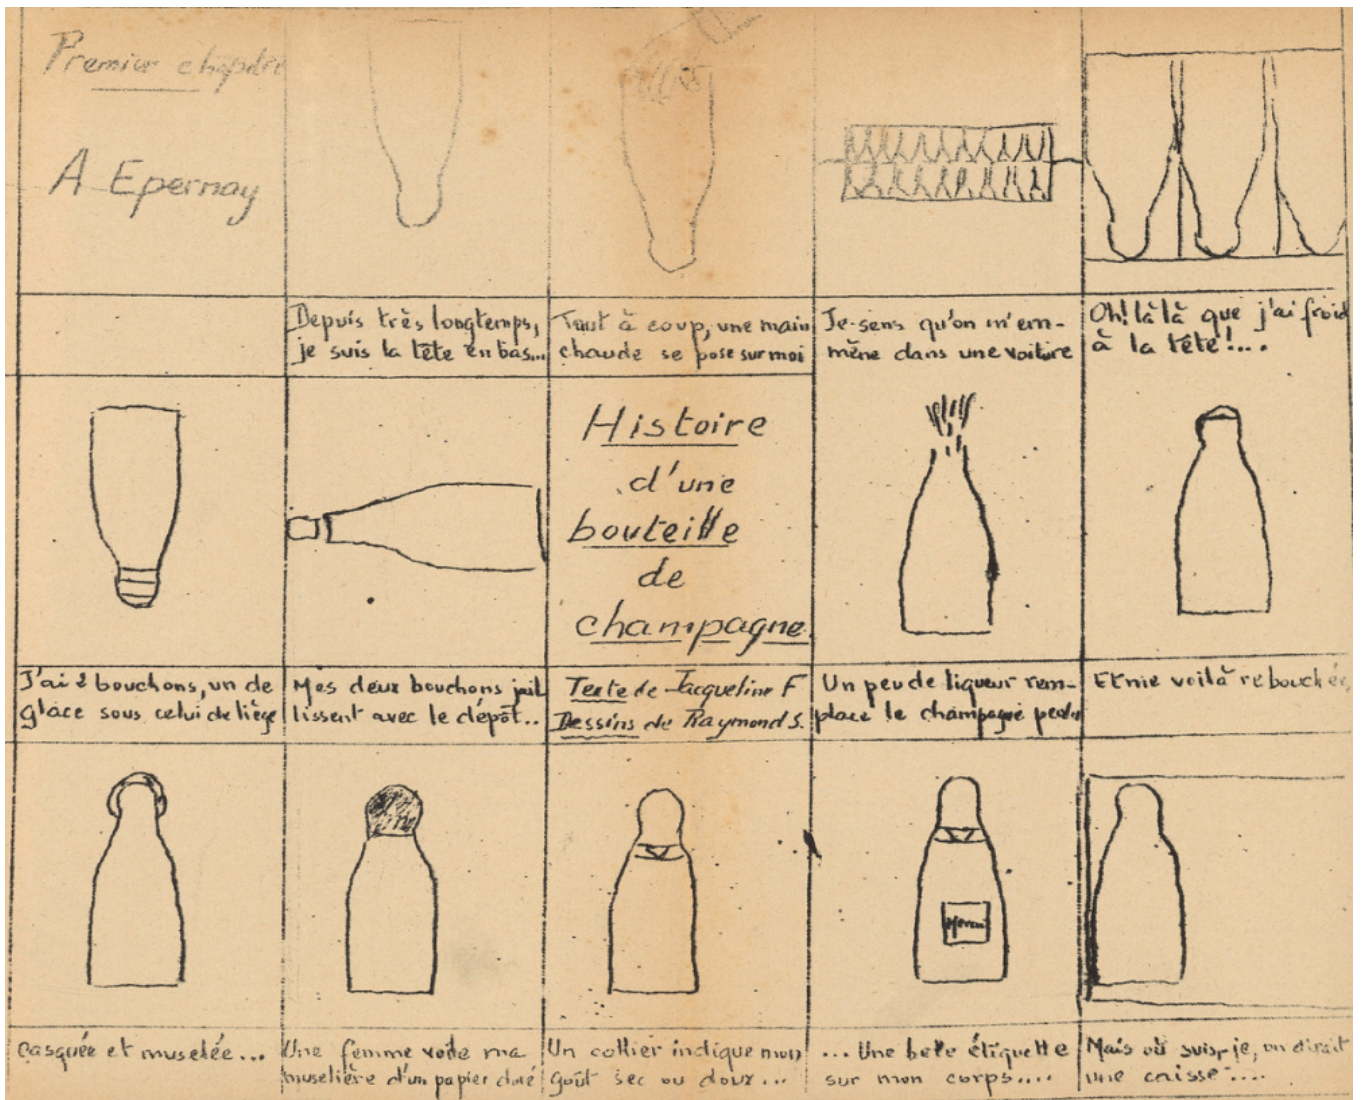 Premier chapitre
A Epernay
Depuis très longtemps,
je suis la tête en bas...
Tout à coup, une main
chaude se pose sur moi
Je sens qu'on m'em-
mène dans une voiture
Oh! là là que j'ai froid
à la tête!...
Histoire
d'une
bouteille
de
champagne
J'ai 2 bouchons, un de
glace sous celui de liège
Mes deux bouchons jail
lissent avec le dépôt..
Texte de Jacqueline F
Dessins de Raymond S.
Un peu de liqueur rem-
place le champagne perdu
Et me voilà rebouchée,
Mercier
casquée et muselée...
Une femme voile ma
muselière d'un papier doré
Un collier indique mon
goût sec ou doux...
...Une belle étiquette
sur mon corps....
Mais où suis-je, on dirait
une caisse....